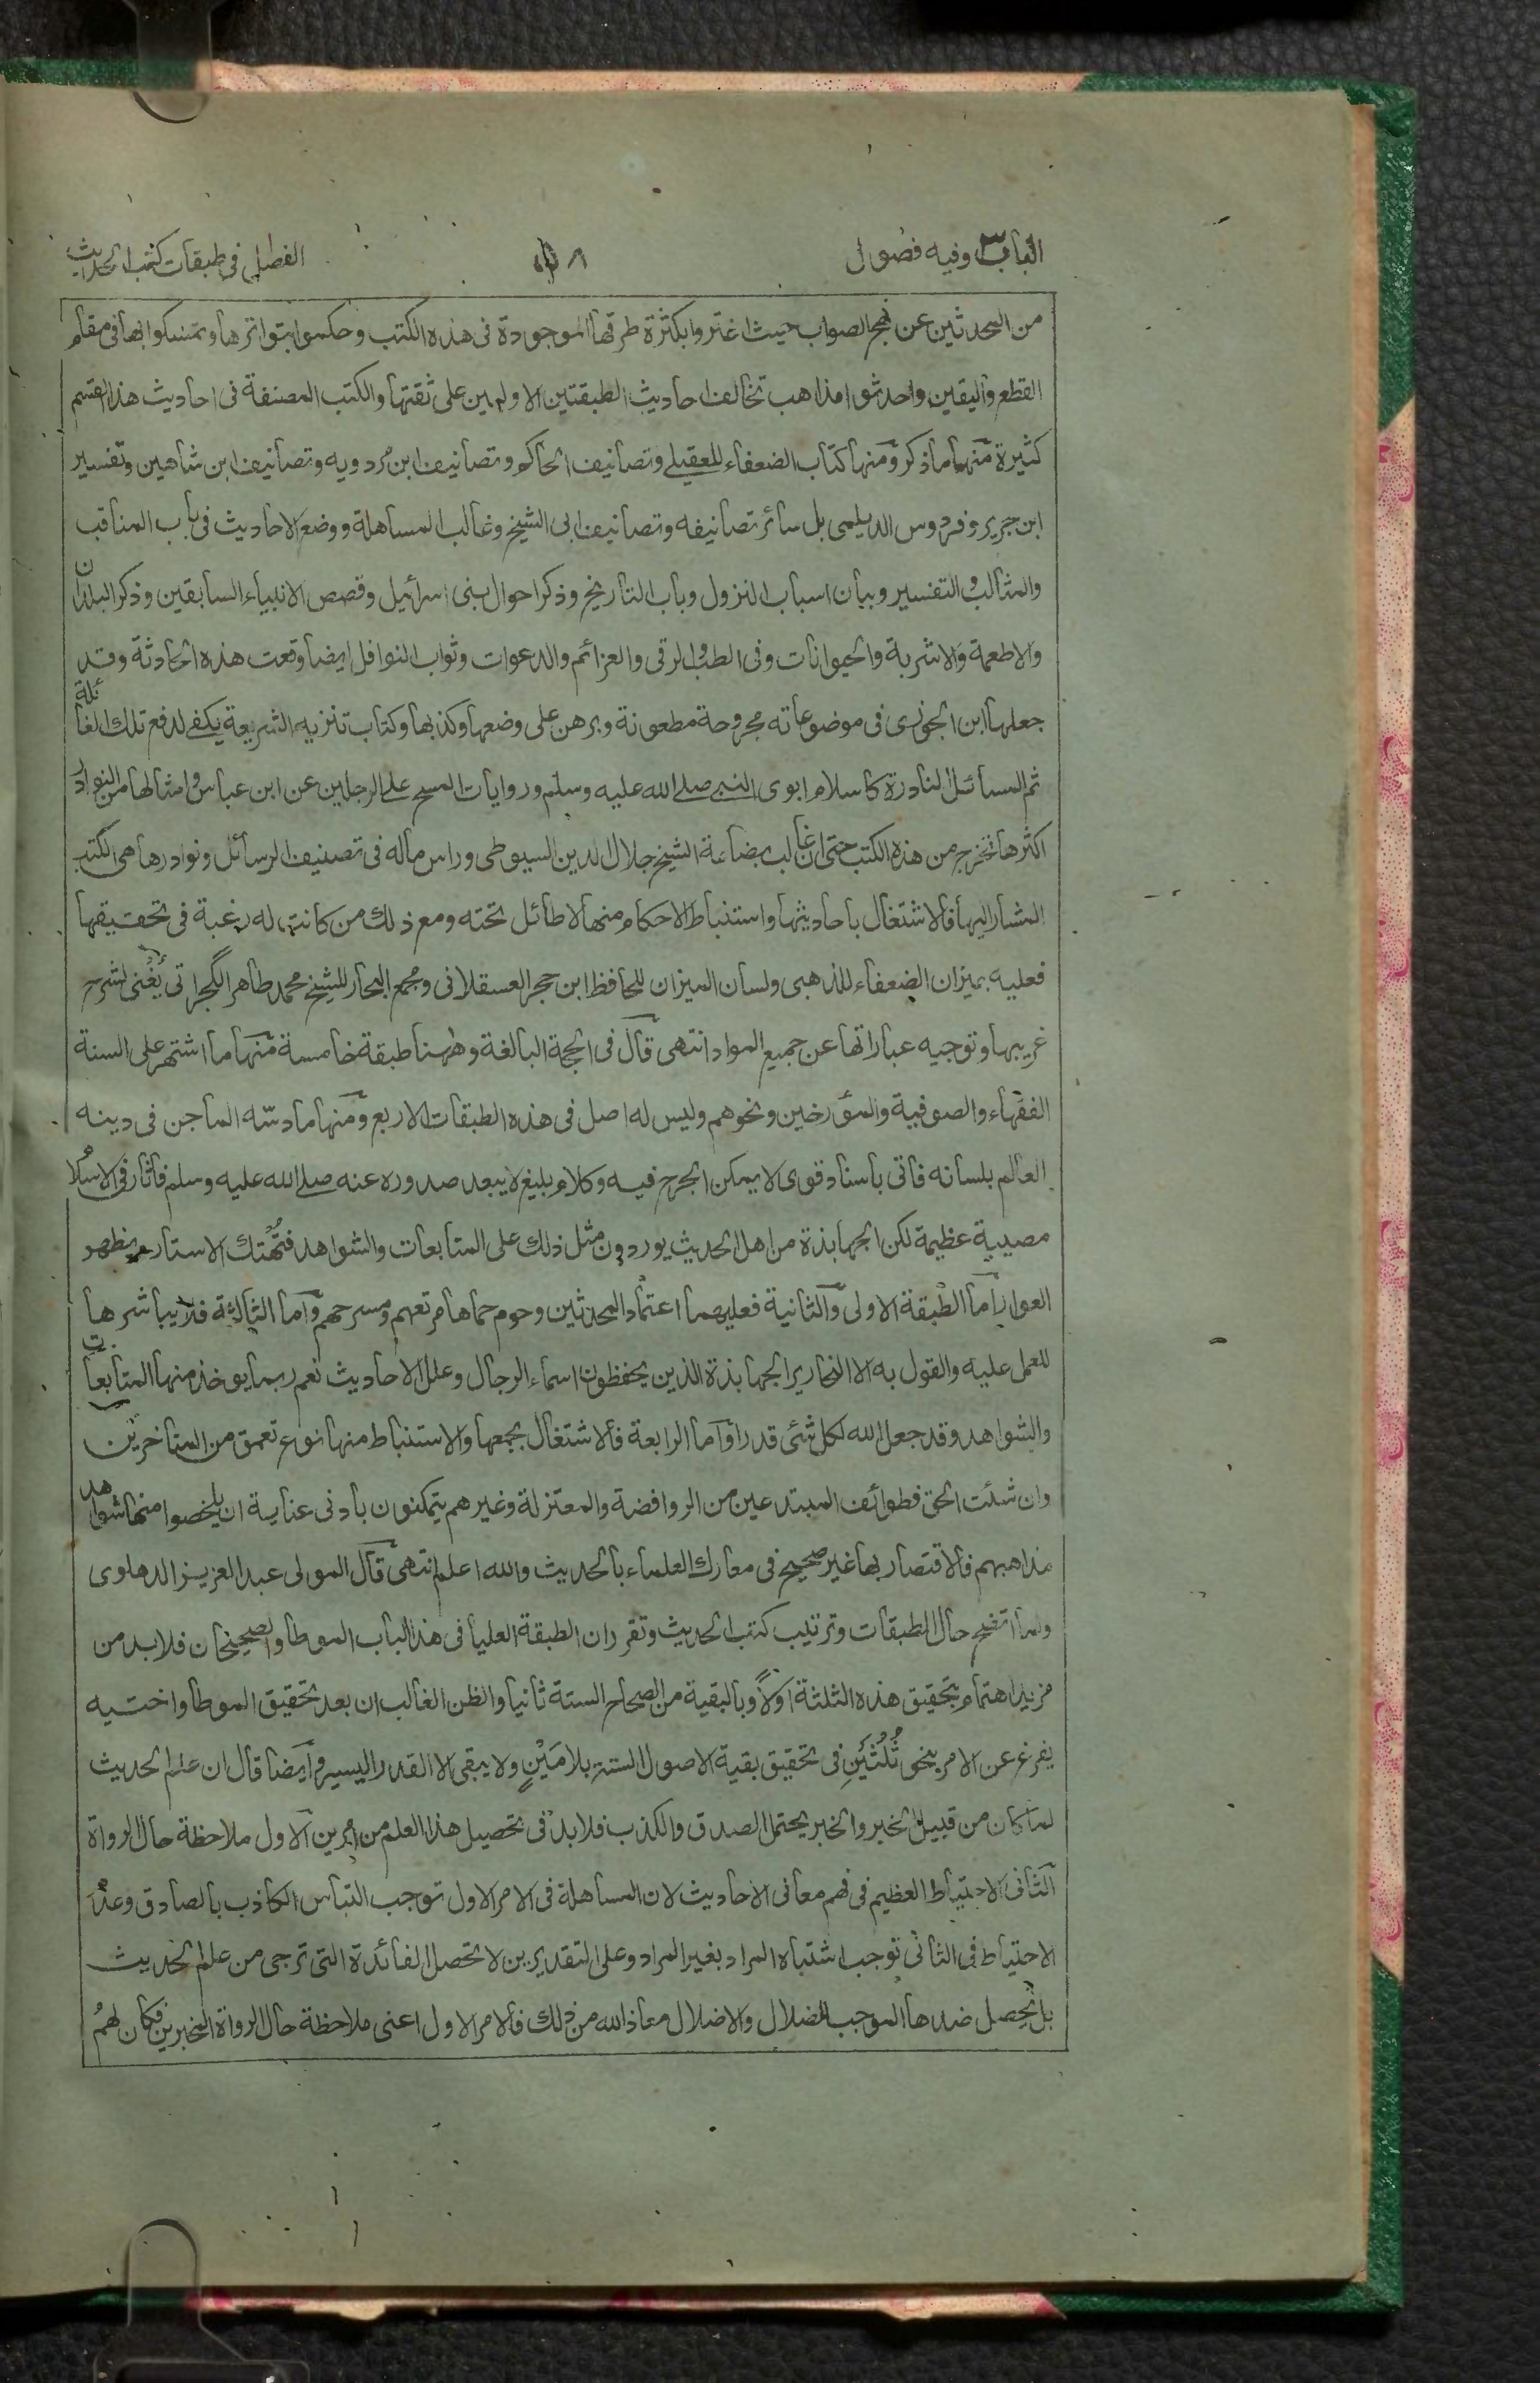 الباب ٣ وفيه فصول
٥٨
الفصل فى طبقات كتب الحديث
من المحدثين عن نهج الصواب حيث اغتروا بكثرة طرقها الموجودة فى هذه الكتب وحكموا بتواترها وتمسكوا بها فى مقام
القطع واليقين واحدثوا مذاهب تخالف احاديث الطبقتين الاوليين على ثقتها والكتب المصنفة فى احاديث هذا القسم
كثيرة منها ما ذكر ومنها كتاب الضعفاء للعقيلے وتصانيف الحاكم وتصانيف ابن مردويه وتصانيف ابن شاهين وتفسير
ابن جرير وفردوس الديلمى بل سائر تصانيفه وتصانيف ابى الشيخ وغالب المساهلة ووضع الاحاديث فى باب المناقب
والمثالب والتفسير وبيان اسباب النزول وباب التاريخ وذكر احوال بنى اسرائيل وقصص الانبياء السابقين وذكر البلدان
والاطعمة والاشربة والحيوانات وفى الطب والرقى والعزائم والدعوات وثواب النوافل ايضا وقعت هذه الحادثة وقد
جعلها ابن الجوزى فى موضوعاته مجروحة مطعونة وبرهن على وضعها وكذبها وكتاب تنزيه الشريعة يكفے لدفع تلك الغائلة
ثم المسائل النادرة كاسلام ابوى النبے صلے الله عليه وسلم وروايات المسح علے الرجلين عن ابن عباس وامثالها من النوادر
اكثرها تخرج من هذه الكتب حتى ان غالب بضاعة الشيخ جلال الدين السيوطى وراس ماله فى تصنيف الرسائل ونوادرها هى الكتب
المشار اليها فالاشتغال باحاديثها واستنباط الاحكام منها لا طائل تحته ومع ذلك من كانت له رغبة فى تحقيقها
فعليه بميزان الضعفاء للذهبى ولسان الميزان للحافظ ابن حجر العسقلانى ومجمع البحار للشيخ محمد طاهر الگجراتى يُغنى لشرح
غريبها وتوجيه عباراتها عن جميع المواد انتهى قال فى الحجة البالغة وههنا طبقة خامسة منها ما اشتهر على السنة
الفقهاء والصوفية والمؤرخين ونحوهم وليس له اصل فى هذه الطبقات الاربع ومنها ما دسّه الماجن فى دينه
العالم بلسانه فاتى باسناد قوى لا يمكن الجرح فيه وكلام بليغ لا يبعد صدوره عنه صلے الله عليه وسلم فاثار فى الاسلام
مصيبة عظيمة لكن الجهابذة من اهل الحديث يوردون مثل ذلك على المتابعات والشواهد فتُهتك الاستار ويظهر
العوار اما الطبقة الاولى والثانية فعليهما اعتماد المحدثين وحوم حماها مرتعهم ومسرحهم واما الثالثة فلا يباشرها
للعمل عليه والقول به الا النحارير الجهابذة الذين يحفظون اسماء الرجال وعلل الاحاديث نعم ربما يوخذ منها المتابعات
والشواهد وقد جعل الله لكل شئى قدرا واما الرابعة فالاشتغال بجمعها والاستنباط منها نوع تعمق من المتاخرين
وان شئت الحق فطوائف المبتدعين من الروافضة والمعتزلة وغيرهم يتمكنون بادنى عناية ان يلخصوا منها شواهد
مذاهبهم فالاقتصار بها غير صحيح فى معارك العلماء بالحديث والله اعلم انتهى قال المولى عبد العزيز الدهلوى
ولما اتضح حال الطبقات وترتيب كتب الحديث وتقرر ان الطبقة العليا فى هذا الباب الموطا والصحيحان فلابد من
مزيد اهتمام بتحقيق هذه الثلثة اولاً وبالبقية من الصحاح الستة ثانيا والظن الغالب ان بعد تحقيق الموطا واختيه
يفرغ عن الامر بنحو ثُلُثَينِ فى تحقيق بقية الاصول الستة بلا مَيْنٍ ولا يبقى الا القدر اليسير وايضا قال ان علم الحديث
لما كان من قبيل الخبر والخبر يحتمل الصدق والكذب فلابد فى تحصيل هذا العلم من امرين الاول ملاحظة حال الرواة
الثانى الاحتياط العظيم فى فهم معانى الاحاديث لان المساهلة فى الامر الاول توجب التباس الكاذب بالصادق وعدم
الاحتياط فى الثانى توجب اشتباه المراد بغير المراد وعلى التقديرين لا تحصل الفائدة التى ترجى من علم الحديث
بل يحصل ضدها الموجب للضلال والاضلال معاذ الله من ذلك فالامر الاول اعنى ملاحظة حال الرواة المخبرين فكان لهم